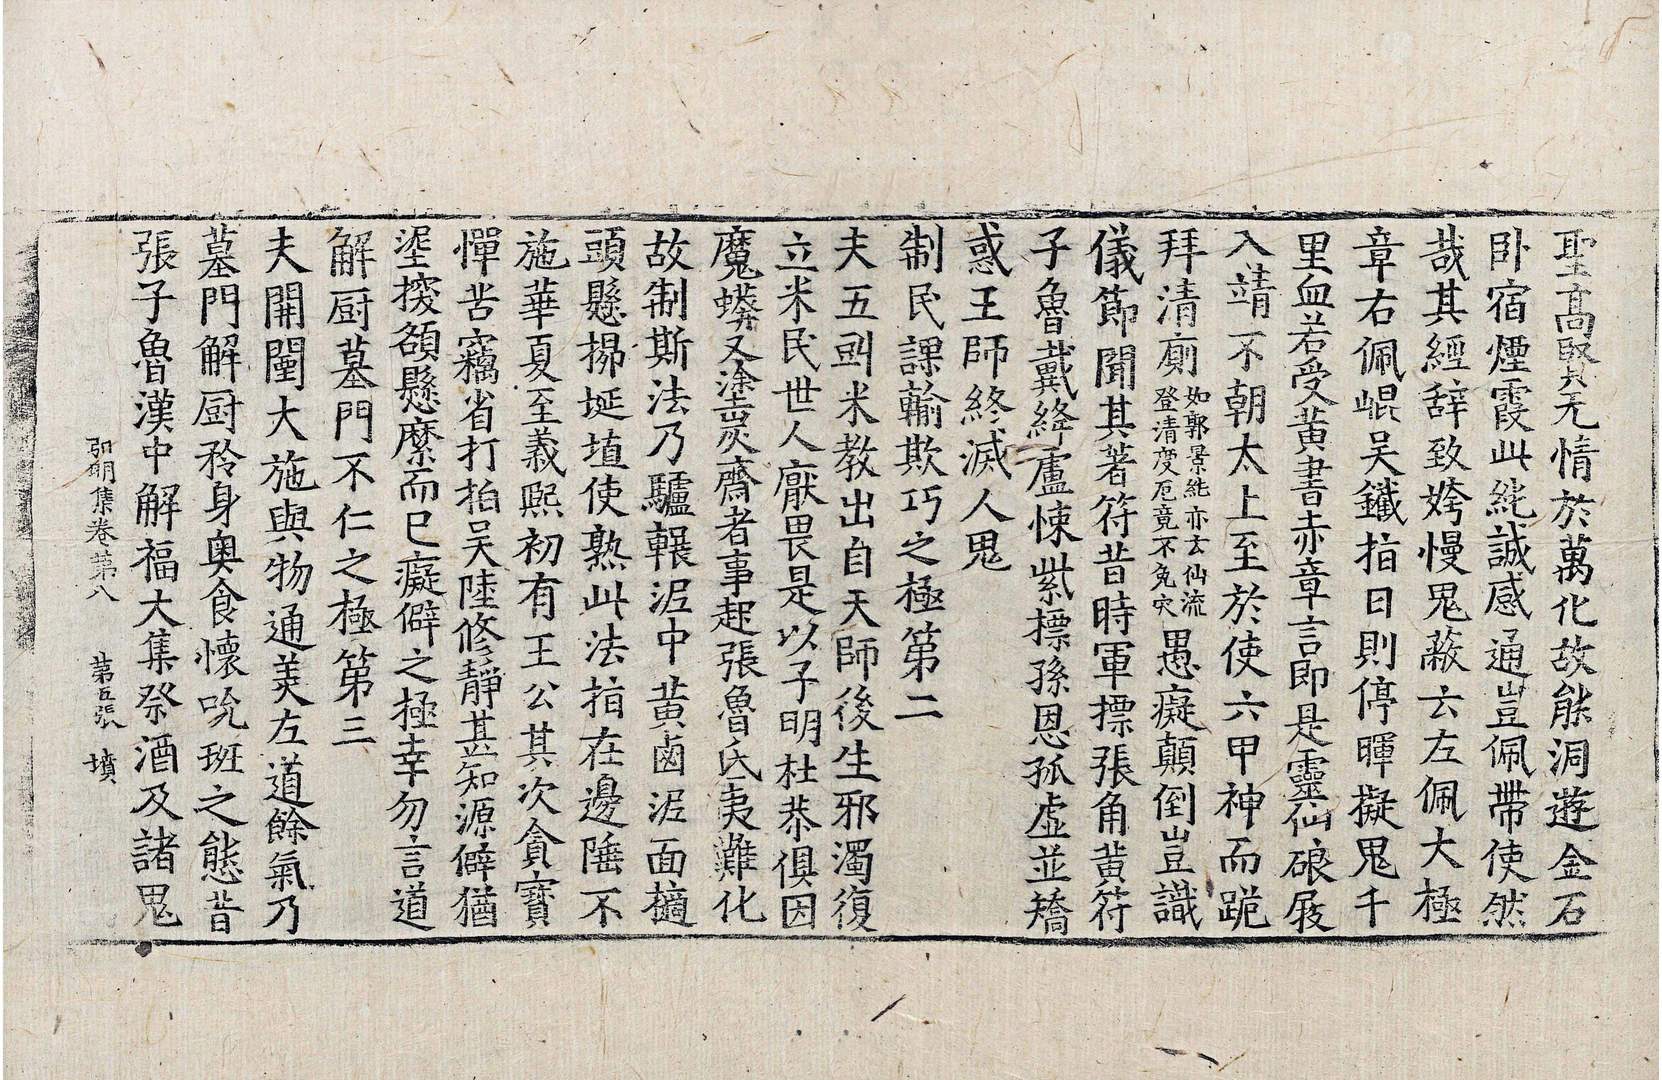 聖高賢无情於萬化故能洞遊金石
卧宿煙霞此純誠感通豈佩帶使然
哉其經辭致姱慢鬼蔽云左佩大極
章右佩崐吴鐵指日則停暉擬鬼千
里血若受黄書赤章言即是靈仙硠屐
入靖不朝太上至於使六甲神而跪
拜清廁如郭景純亦云仙流登清度厄竟不免灾愚癡顛倒豈識
儀節聞其著符昔時軍摽張角黄符
子魯戴絳盧悚紫摽孫恩孤虚並矯
惑王師終滅人鬼
制民課輸欺巧之極第二
夫五㪷米教出自天師後生邪濁復
立米民世人厭畏是以子明杜恭俱因
魔蟒又塗炭齋者事起張魯氐夷難化
故制斯法乃驢輾泥中黄鹵泥面擿
頭懸揚埏埴使熟此法指在邊陲不
施華夏至義熙初有王公其次貪寶
憚苦竊省打拍吴陸修靜甚知源僻猶
埿揬頟懸縻而已癡僻之極幸勿言道
解厨墓門不仁之極第三
夫開闡大施與物通美左道餘氣乃
墓門解厨矜身奥食懷吮班之態昔
張子魯漢中解福大集祭酒及諸鬼
弘明集卷第八 第五張 墳